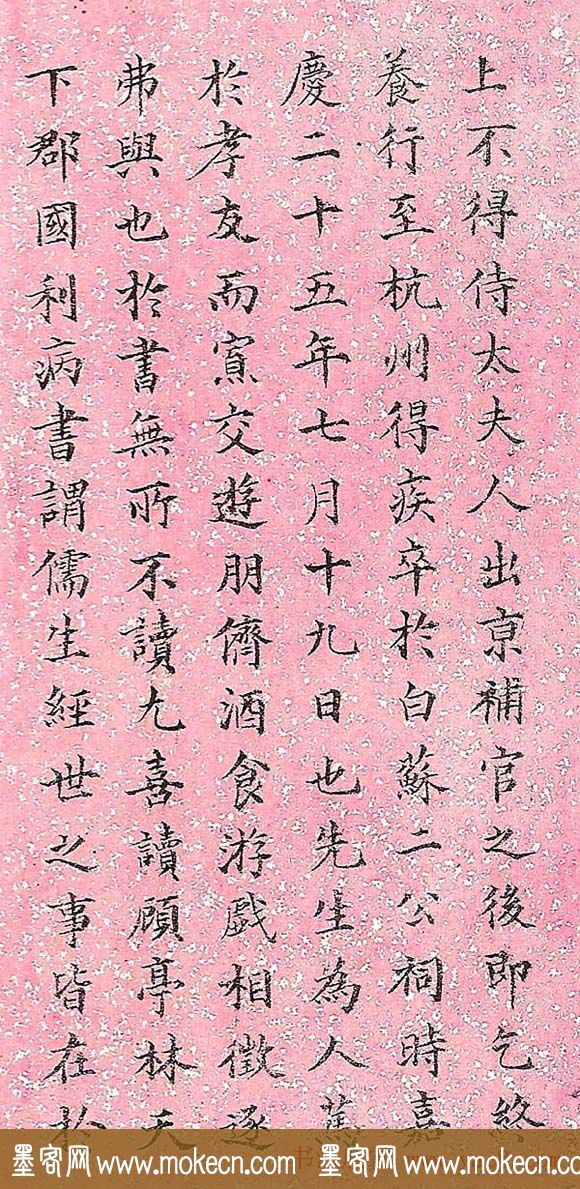 上不得侍太夫人出京補官之後即乞終
養行至杭州得疾卒於白蘇二公祠時嘉
慶二十五年七月十九日也先生為人篤
於孝友而寡交遊朋儕酒食游戲相徵逐
弗與也於書無所不讀尤喜讀顧亭林天
下郡國利病書謂儒生經世之事皆在於
墨客网 www.mokecn.com 墨客网 www.mokecn.com